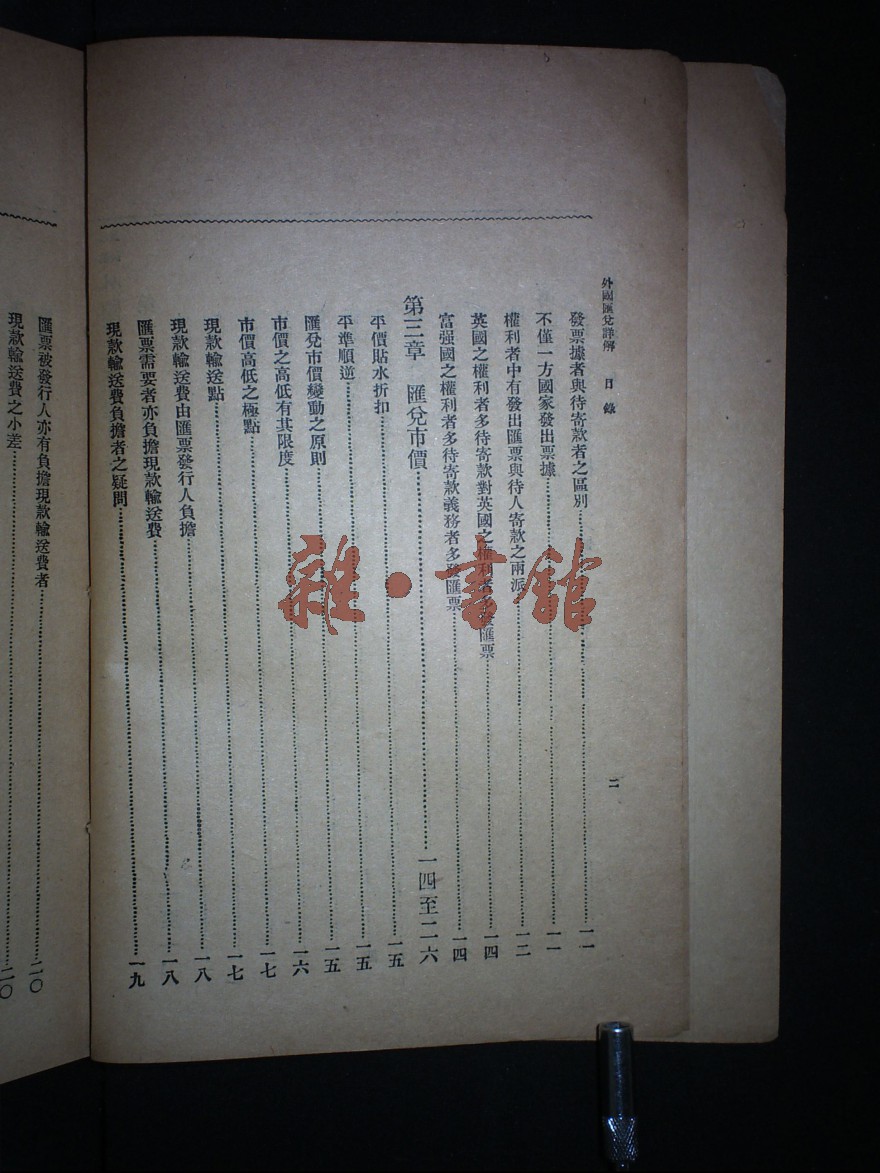 外國匯兌詳解 目錄 二
發票據者與待寄款者之區別……一一
不僅一方國家發出票據……一一
權利者中有發出匯票與待人寄款之兩派……一二
英國之權利者多待寄款對英國之權利者多發匯票……一四
富强國之權利者多待寄款義務者多發匯票……一四
第三章 匯兌市價……一四至二六
平價貼水折扣……一五
平準順逆……一五
匯兌市價變動之原則……一五
市價之高低有其限度……一六
市價高低之極點……一七
現款輸送點……一七
現款輸送費由匯票發行人負擔……一八
匯票需要者亦負擔現款輸送費……一八
現款輸送費負擔者之疑問……一九
匯票被發行人亦有負擔現款輸送費者……二〇
現款輸送費之小差……二〇
雜·書館